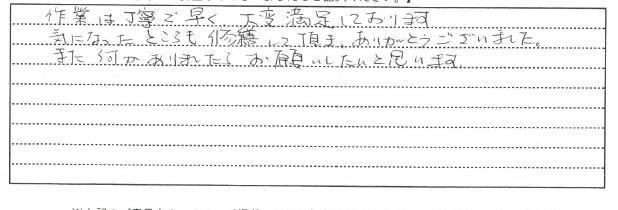 作業は丁寧で早く大変満足しております
気になったところも修繕して頂き、ありがとうございました。
また何かありましたらお願いしたいと思います